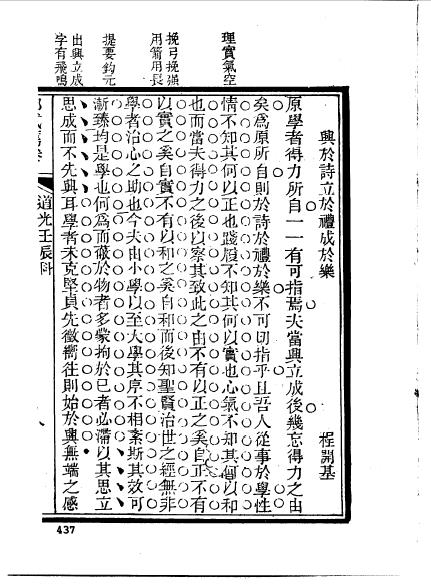 理實氣空
挽弓挽強
用箭用長
提要鈎元
出興立成
字有飛鳴
興於詩立於禮成於樂
程開基
原學者得力所自一一有可指焉夫當興立成後幾忘得力之由
矣爲原所自則於詩於禮於樂不可切指乎且吾人從事於學性
情不知其何以正也踐履不知其何以實也心氣不知其何以和
也而當夫得力之後以察其致此之由不有以正之奚自正不有
以實之奚自實不有以和之奚自和而後知聖賢治世之經無非
學者治心之助也今夫由小學以至大學其序不相紊斯其效可
漸臻均是學也何爲而蔽於物者多蒙拘於已者必滯以其思立
思成而不先興耳學者未克堅貞先徵嚮往則始於興無端之感
道光壬辰科
437